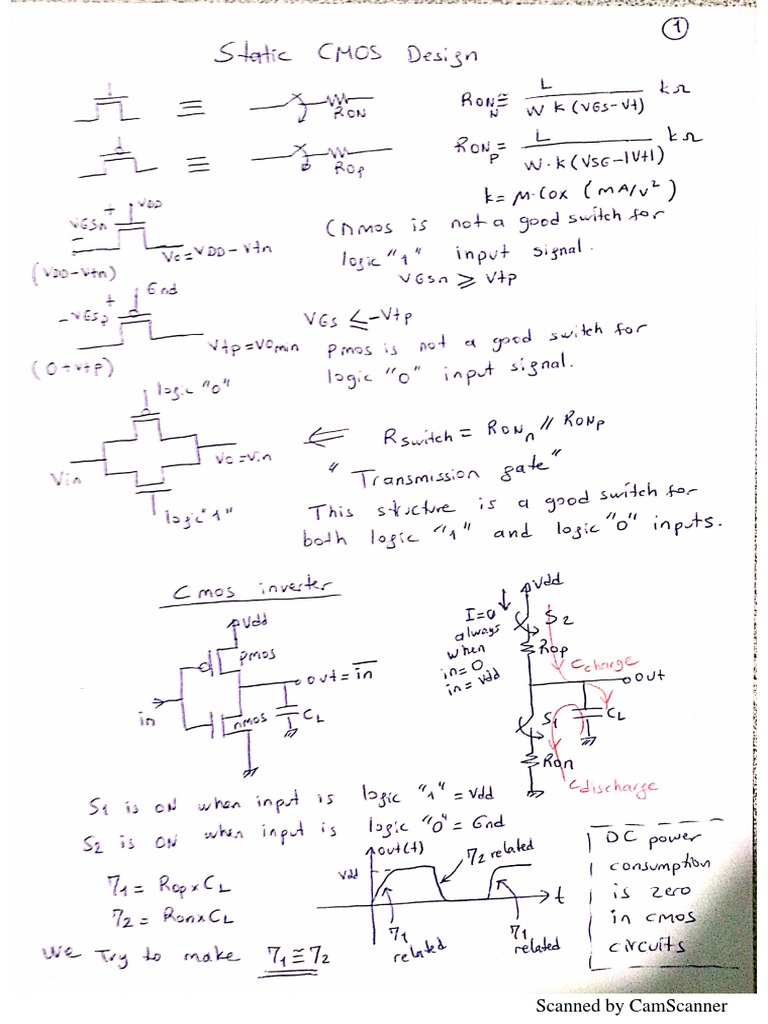 1
Static CMOS Design
≡ RON
RONN ≅ L / W k (VGS-Vt) kΩ
≡ ROP
RONP = L / W·k (VSG-|Vt|) kΩ
k = µ·Cox (mA/V²)
+ VDD
VGSn
-
Vc = VDD-Vtn
(VDD-Vtn)
(nmos is not a good switch for
logic "1" input signal.
VGSn ⩾ Vtp
+ Gnd
-VGSp
Vtp = Vomin
(0+Vtp)
VGS ≤ -Vtp
pmos is not a good switch for
logic "0" input signal.
logic "0"
Vin
Vo = Vin
logic "1"
⇐ Rswitch = RONn // RONp
"Transmission gate"
This structure is a good switch for
both logic "1" and logic "0" inputs.
Cmos inverter
Vdd
pmos
in
out = in̅
nmos
CL
Vdd
I=0
always
when
in=0
in=Vdd
S2
Rop
Ccharge
out
S1
CL
Ron
Cdischarge
S1 is ON when input is logic "1" = Vdd
S2 is ON when input is logic "0" = Gnd
τ1 = Rop x CL
τ2 = Ron x CL
We Try to make τ1 ≅ τ2
out(t)
Vdd
τ2 related
t
τ1
related
τ1
related
DC power
consumption
is zero
in cmos
circuits
Scanned by CamScanner